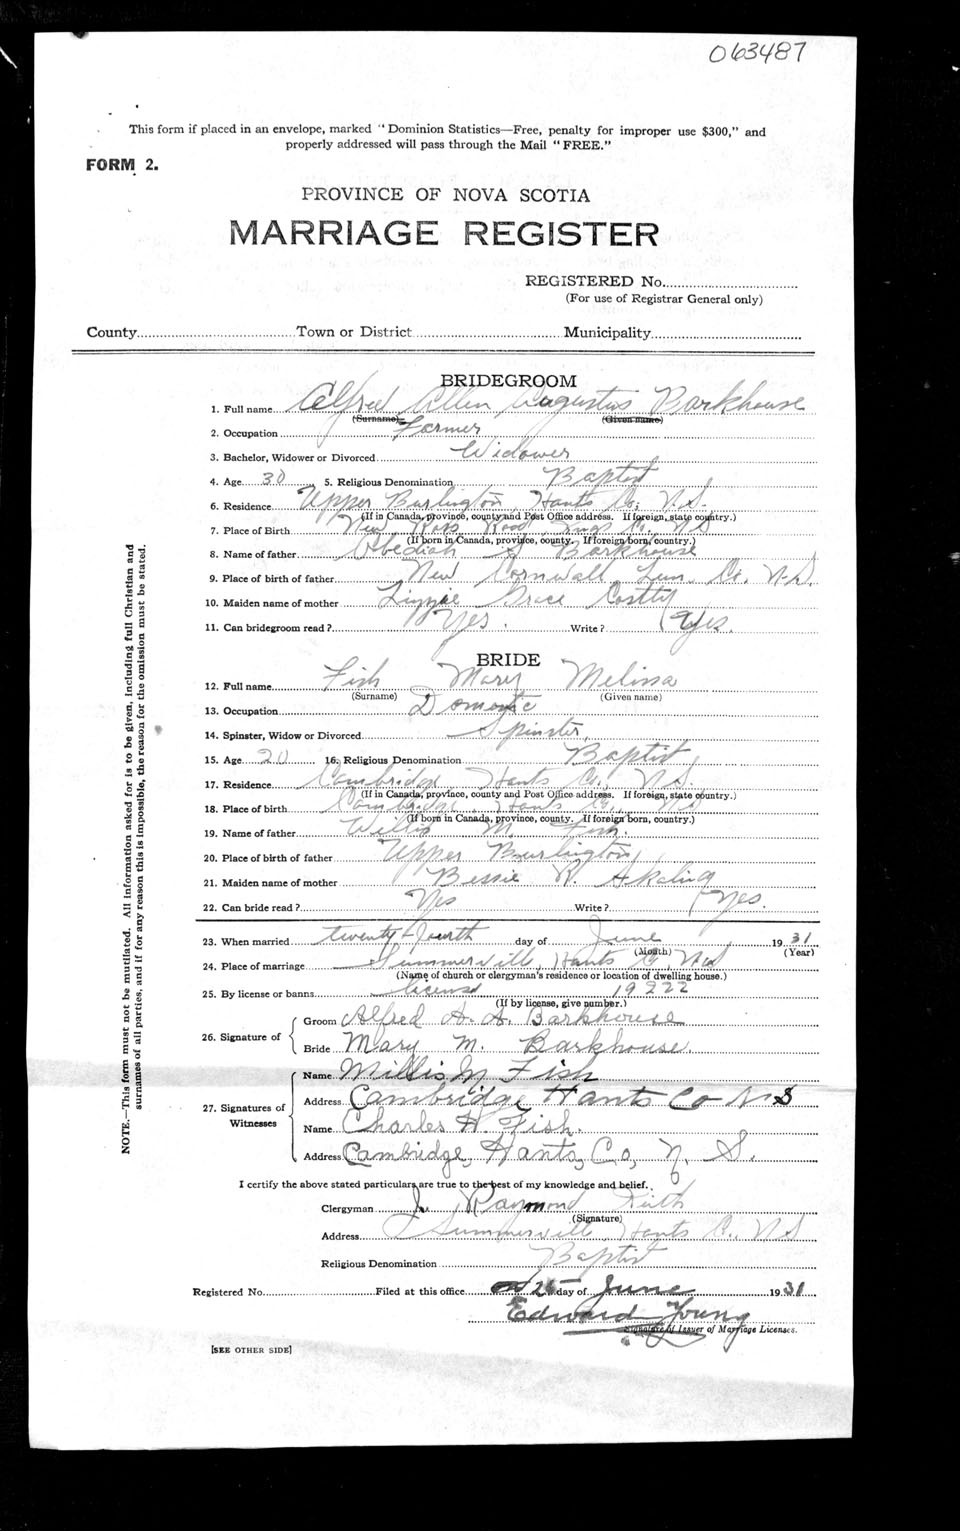 063487
This form if placed in an envelope, marked "Dominion Statistics—Free, penalty for improper use $300," and
properly addressed will pass through the Mail "FREE."
FORM 2.
PROVINCE OF NOVA SCOTIA
MARRIAGE REGISTER
REGISTERED No.
(For use of Registrar General only)
County Town or District Municipality
BRIDEGROOM
1. Full name Alfred Allen Augustus Barkhouse
(Surname) (Given name)
2. Occupation Farmer
3. Bachelor, Widower or Divorced Widower
4. Age 30 5. Religious Denomination Baptist
6. Residence Upper Burlington, Hants Co, N.S.
(If in Canada, province, county and Post Office address. If foreign, state country.)
7. Place of Birth New Ross Road Co. NS
(If born in Canada, province, county. If foreign born, country.)
8. Name of father Obediah S Barkhouse
9. Place of birth of father New Cornwall, Lun. Co. N.S.
10. Maiden name of mother Lizzie Grace
11. Can bridegroom read? Yes. Write? Yes.
BRIDE
12. Full name Fish Mary Melissa
(Surname) (Given name)
13. Occupation Domestic
14. Spinster, Widow or Divorced Spinster,
15. Age 20 16. Religious Denomination Baptist
17. Residence Cambridge Hants Co, N.S.
(If in Canada, province, county and Post Office address. If foreign, state country.)
18. Place of birth Cambridge Hants Co., NS
(If born in Canada, province, county. If foreign born, country.)
19. Name of father Willis M. Fish.
20. Place of birth of father Upper Burlington
21. Maiden name of mother Bessie R.
22. Can bride read? Yes Write? Yes.
23. When married twenty-fourth day of June 1931
(Month) (Year)
24. Place of marriage Summerville, Hants Co, N.S
(Name of church or clergyman's residence or location of dwelling house.)
25. By license or banns license 19222
(If by license, give number.)
26. Signature of
Groom Alfred A. A. Barkhouse
Bride Mary M. Barkhouse.
27. Signatures of
Witnesses
Name Willis M Fish
Address Cambridge Hants Co N S
Name Charles H. Fish.
Address Cambridge, Hants, Co, N. S.
I certify the above stated particulars are true to the best of my knowledge and belief.
Clergyman J. Raymond
(Signature)
Address Summerville, Hants Co., N S
Religious Denomination Baptist
Registered No. Filed at this office 26 day of June 1931
Edward Young
Signature of Issuer of Marriage Licenses.
[SEE OTHER SIDE]
NOTE.—This form must not be mutilated. All information asked for is to be given, including full Christian and
surnames of all parties, and if for any reason this is impossible, the reason for the omission must be stated.